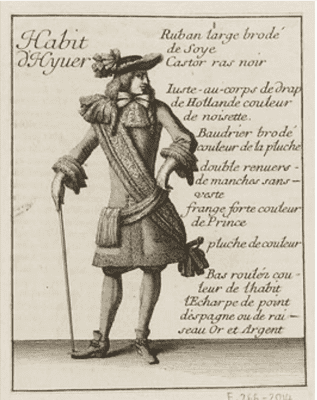 Habit
d'Hyuer
Ruban large brodé
de Soye
Castor ras noir
Iuste-au-corps de drap
de Hollande couleur
de noisette.
Baudrier brodé
couleur de la pluche
double renuers-
de manches sans-
veste
frange forte couleur
de Prince
pluche de couleur
Bas roulez cou-
leur de lhabit
lEcharpe de point
despagne ou de rai-
seau Or et Argent